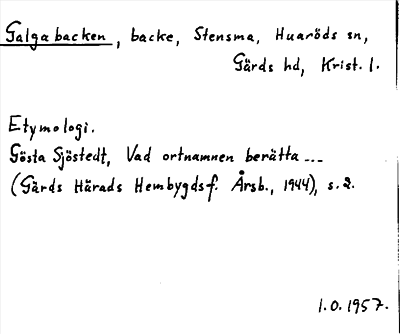 Galgabacken, backe, Stensma, Huaröds sn,
Gärds hd, Krist. l.
Etymologi.
Gösta Sjöstedt, Vad ortnamnen berätta ---
(Gärds Härads Hembygdsf. Årsb., 1944), s. 2.
I.O. 1957.